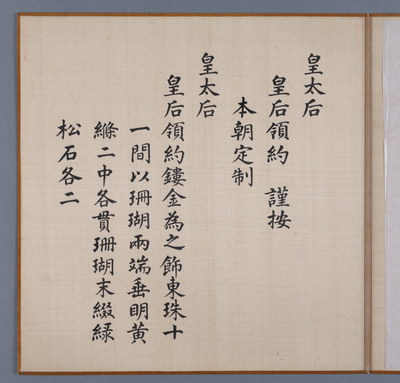 皇太后
皇后領約 謹按
本朝定制
皇太后
皇后領約鏤金為之飾東珠十
一間以珊瑚兩端垂明黃
絛二中各貫珊瑚末綴綠
松石各二